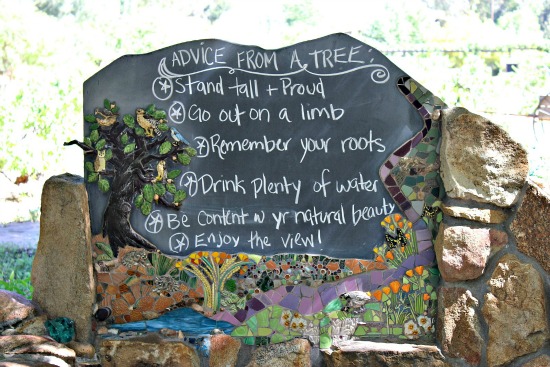 ADVICE FROM A TREE:
Stand tall + Proud
Go out on a limb
Remember your roots
Drink plenty of water
Be Content w yr natural beauty
Enjoy the view!